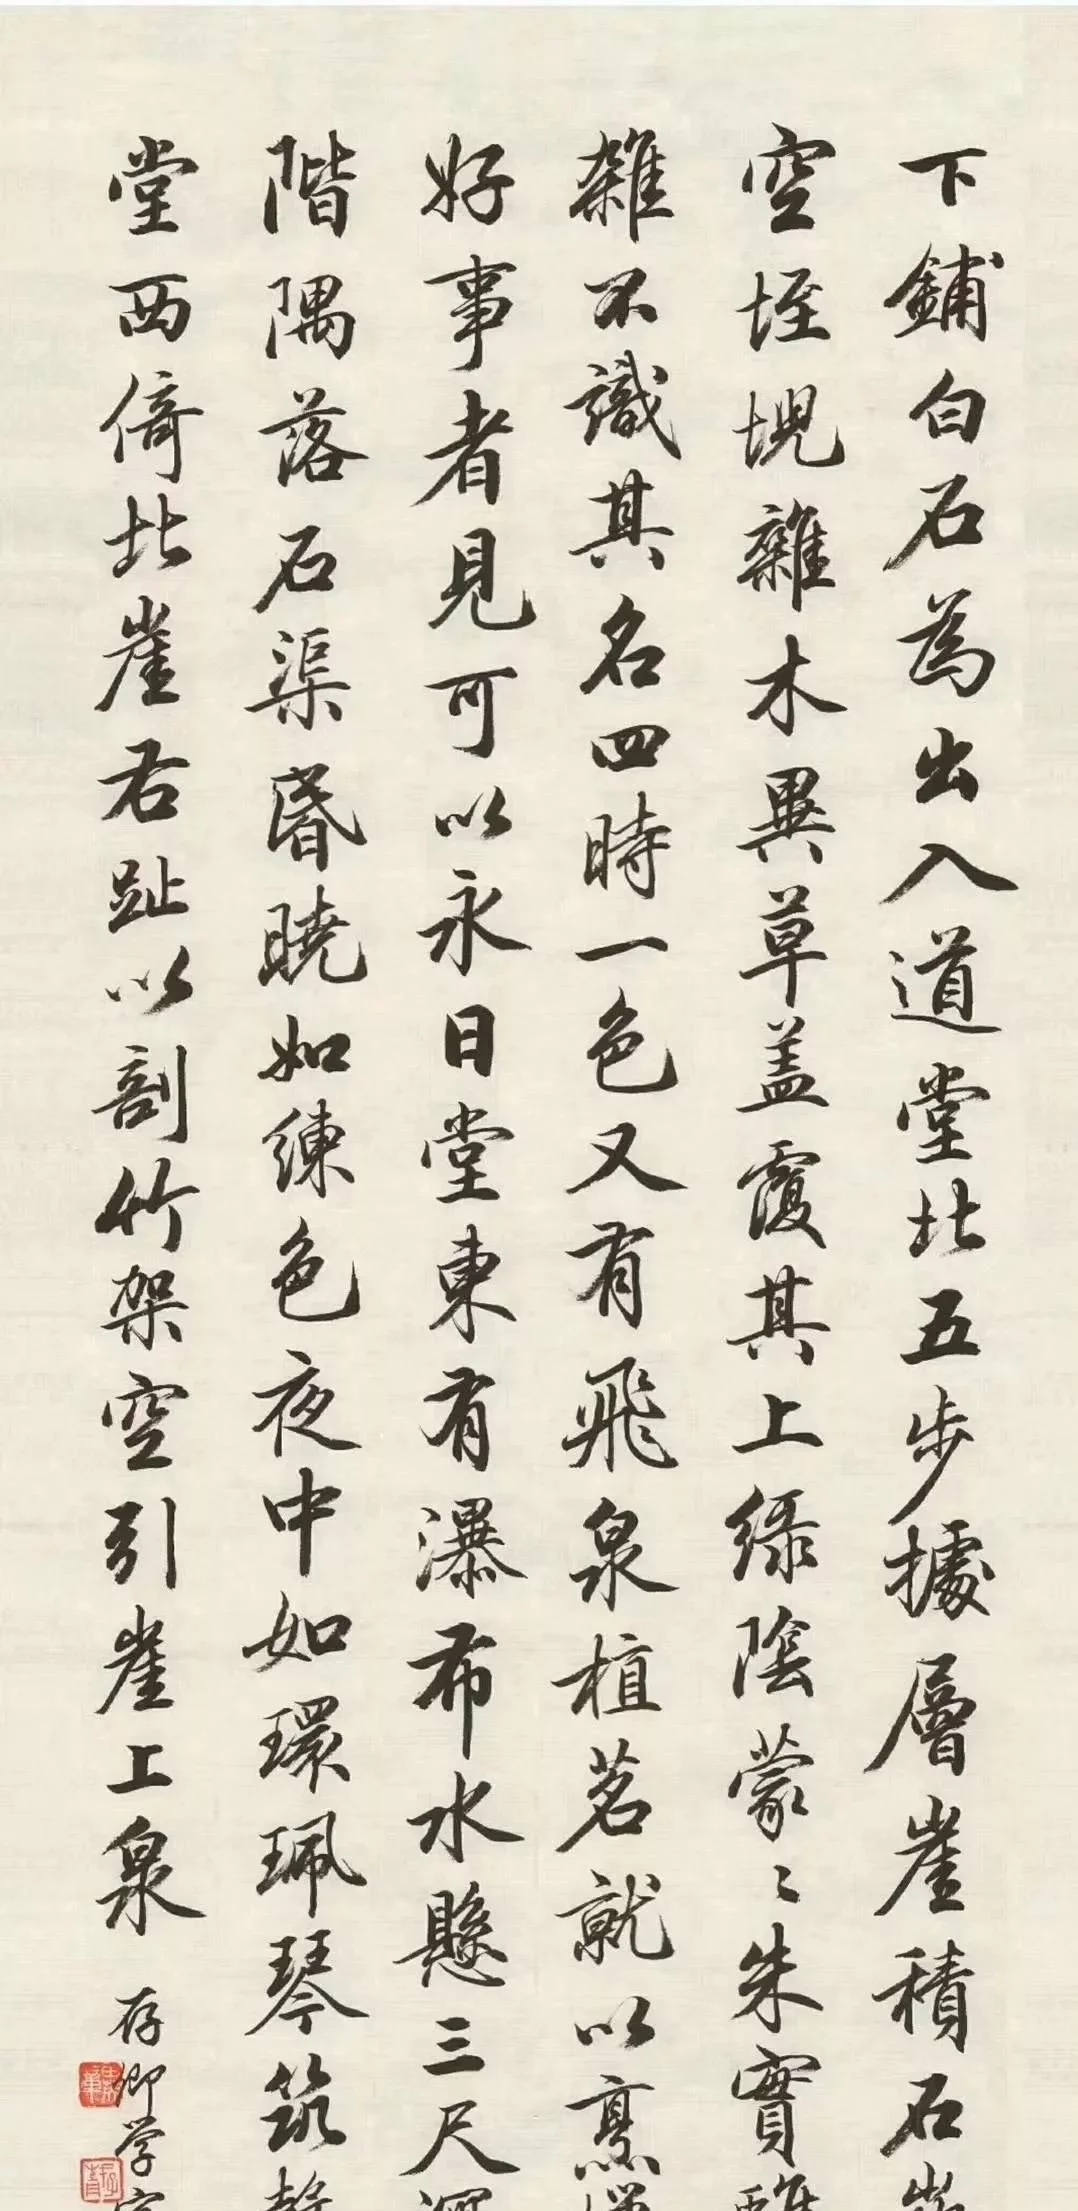 下鋪白石為出入道堂北五步據層崖積石
空垤堄雜木異草盖覆其上綠陰蒙〻朱實
雜不識其名四時一色又有飛泉植茗就以烹
好事者見可以永日堂東有瀑布水懸三尺
階隅落石渠昏曉如練色夜中如環珮琴筑
堂西倚北崖右趾以剖竹架空引崖上泉
存卿学